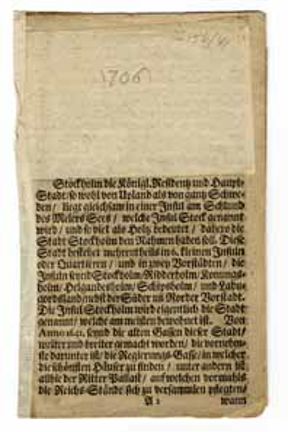 1706
Stockholm die Königl. Residentz und Haupt-
Stadt/ so wohl von Upland als von gantz Schwe-
den/ liegt gleichsam in einer Insul am Schlund
des Melers Sees/ welche Insul Stock genannt
wird/ und so viel als Holtz bedeutet/ dahero die
Stadt Stockholm den Nahmen haben soll. Diese
Stadt bestehet mehrentheils in 6. kleinen Insuln
oder Quartieren/ und in zwey Vorstädten/ die
Insuln seynd Stockholm/ Ridderholm/ Konungs-
holm/ Helgandesholm/ Schipsholm/ und
nebst der Süder un Norder Vorstadt.
Die Insul Stockholm wird eigentlich die Stadt
genannt/ welche am meisten bewohnet ist. Von
Anno 1641. seynd die alten Gassen dieser Stadt/
weiter und breiter gemacht worden/ die vornehm-
ste darunter ist/ die Regierungs-Gasse/ in welcher
die schönsten Häuser zu finden/ unter andern ist
allhie der Ritter Pallast/ auf welchen vormahls
die Reichs-Stände sich zu versammlen pflegten/
A 2 wann